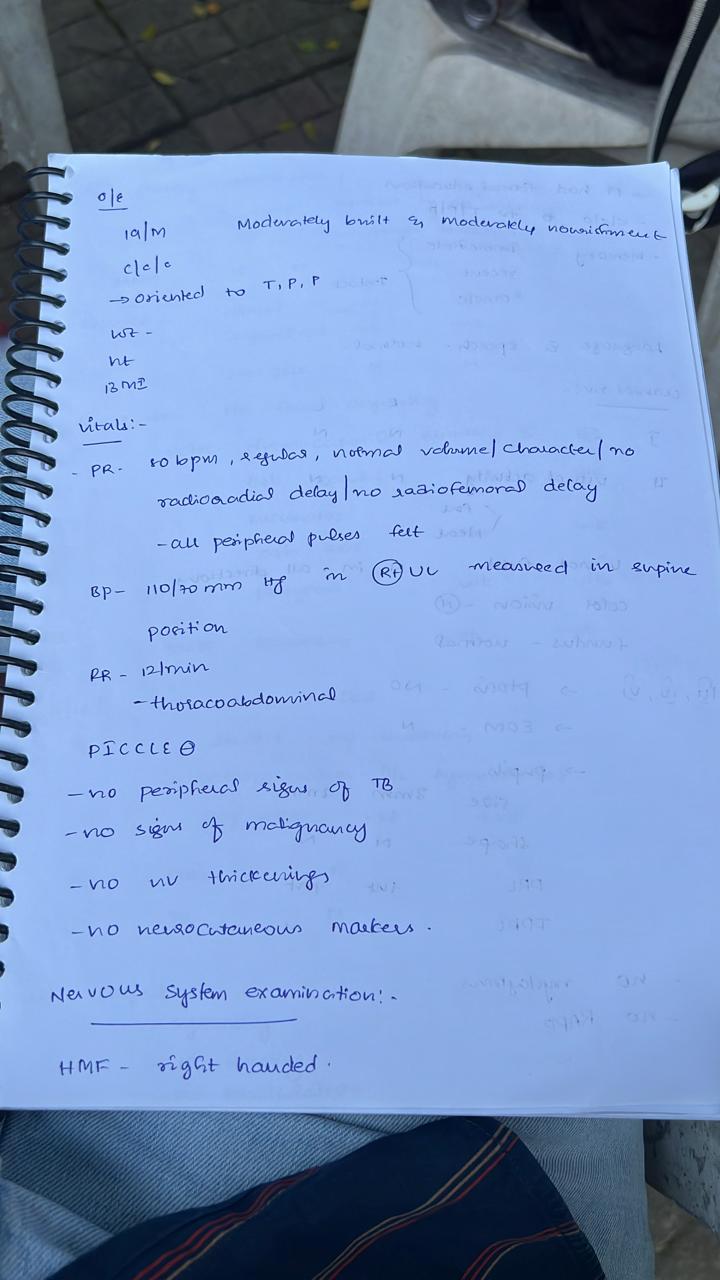 O/E
19/M Moderately built & moderately nourishment
c/c/c
→ oriented to T, P, P
wt -
ht
BMI
Vitals:-
- PR- 80 bpm, regular, normal volume/character/no
radioradial delay/no radiofemoral delay
- all peripheral pulses felt
BP- 110/70 mm Hg in (Rt) UL measured in supine
position
RR - 12/min
- thoracoabdominal
PICCLE ⊖
- no peripheral signs of TB
- no signs of malignancy
- no nv thickenings
- no neurocutaneous markers.
Nervous system examination:-
HMF - right handed.